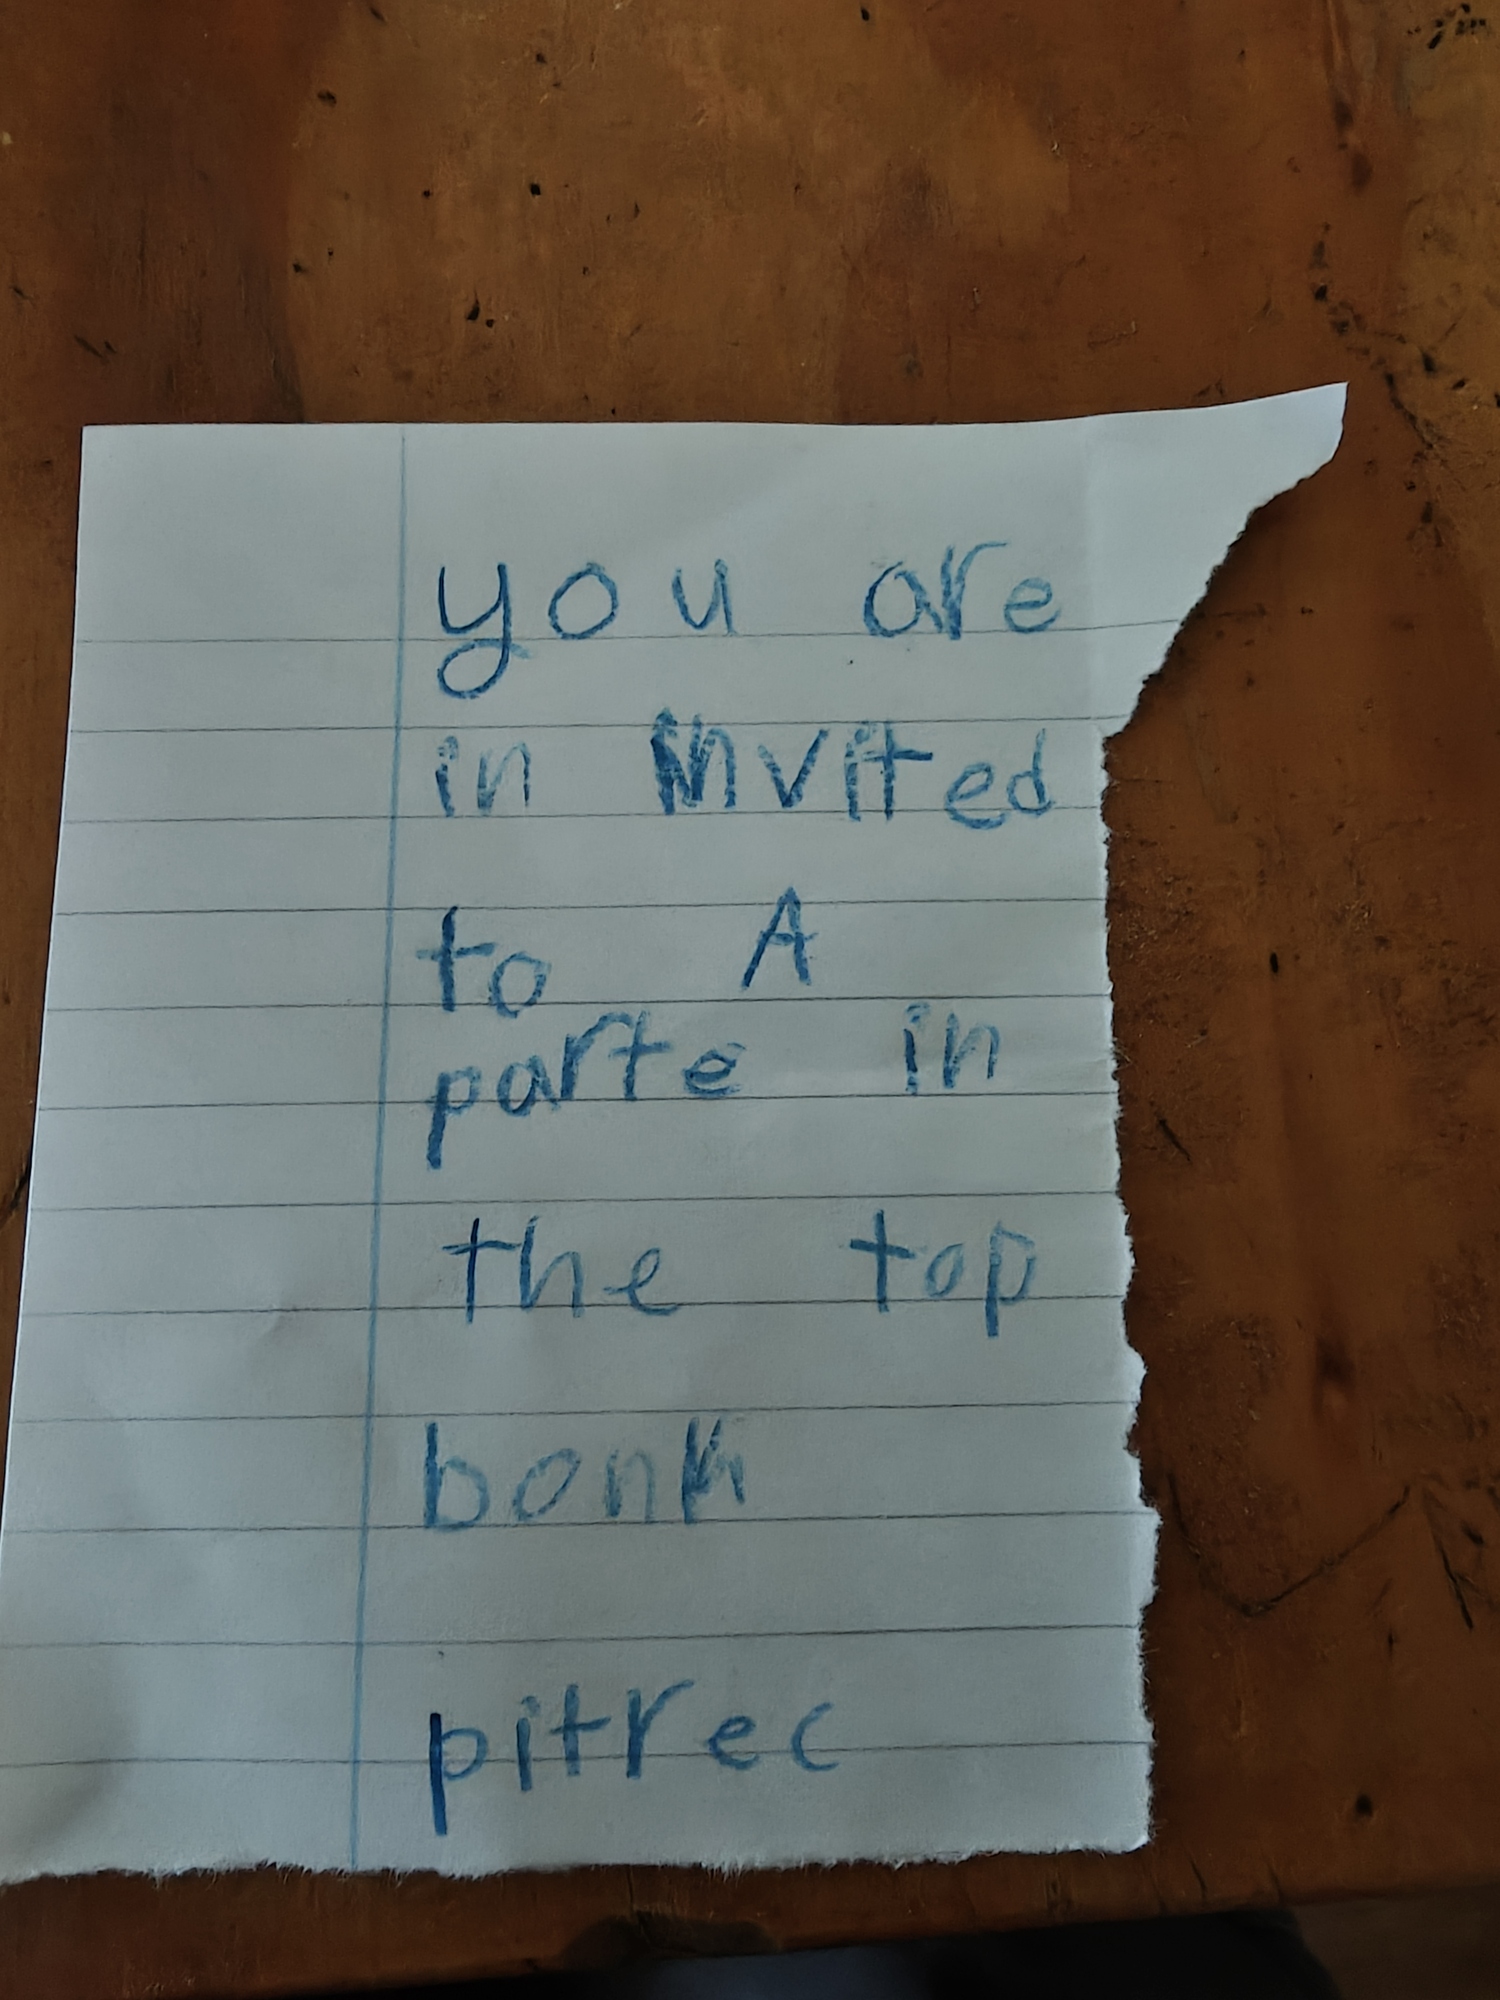 you are
in invited
to A
parte in
the top
bonk
pitrec